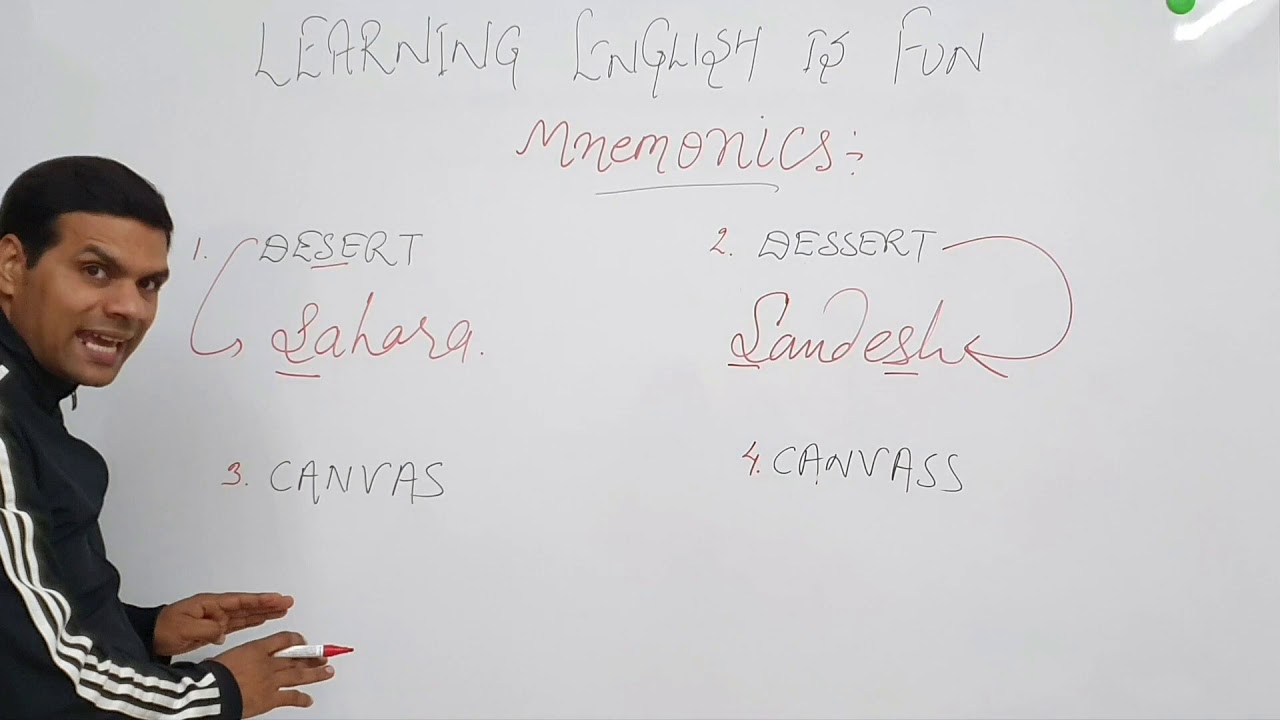 LEARNING ENGLISH IS FUN
Mnemonics:
1. DESERT
Sahara.
2. DESSERT
Sandesh
3. CANVAS
4. CANVASS